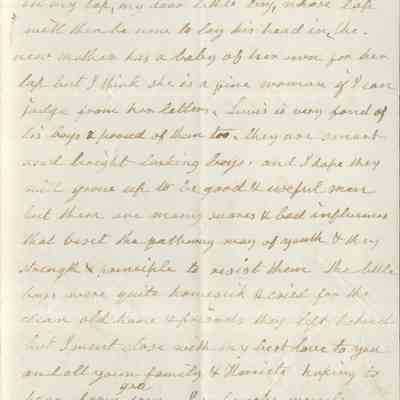 in my lap, my dear little boy, whose lap
will then be none to lay his head in, the
new mother has a baby of her own for her
lap but I think she is a fine woman if I can
judge from her letters. Lewis is very fond of
his boys & proud of them too. they are smart
and bright looking boys, and I hope they
will grow up to be good & useful men
but there are many snares & bad influences
that beset the pathway of youth & they
strength & principle to resist them the little
boys were quite homesick & cried for the
dear old home & friends they left behind
but I must close with my best love to you
and all your family & Harriets hoping to
hear from you